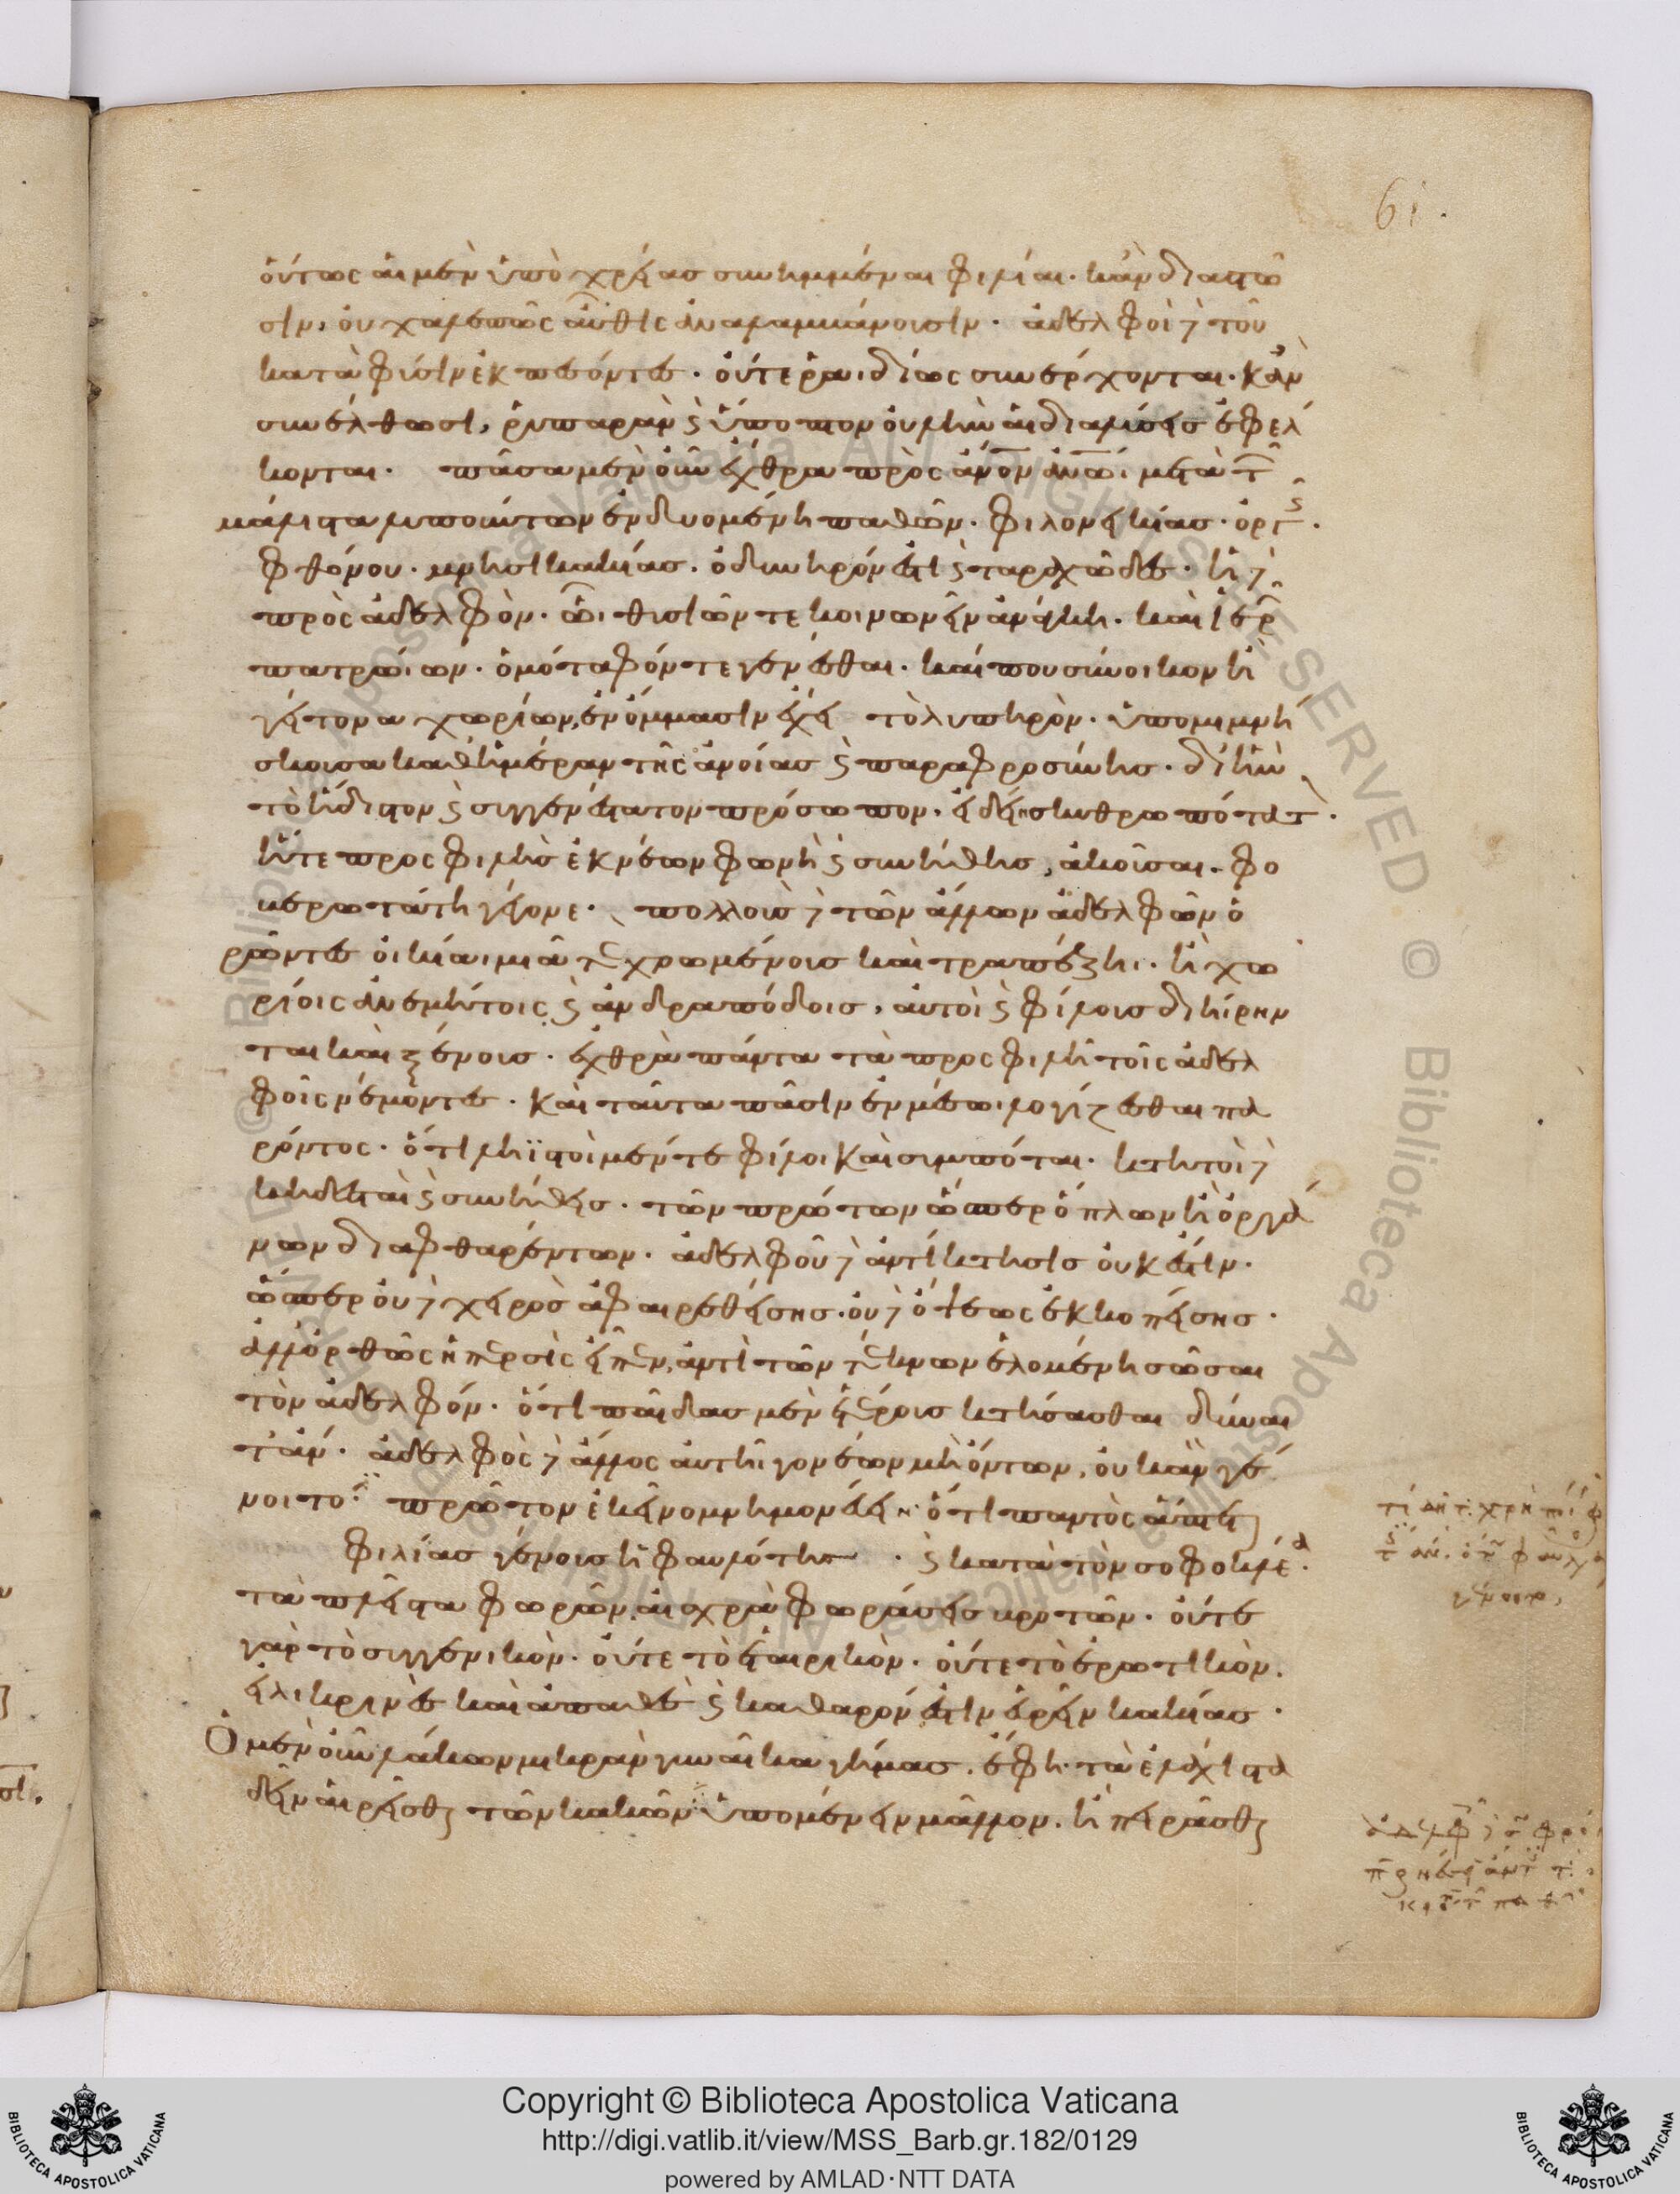 οὕτως αἱ μὲν ὑπὸ χρείας συνημμέναι φιλίαι. κἂν διαστῶ
σιν, οὐ χαλεπῶς αὖθις ἀναλαμβάνουσιν. ἀδελφοὶ δὲ τοῦ
κατὰ φύσιν ἐκπεσόντες. οὔτε ῥαιδίως συνέρχονται. κἂν
συνέλθωσι, ῥυπαρὰν καὶ ὕποπτον οὐλὴν αἱ διαλύσεις ἐφέλ
κονται. πᾶσα μὲν οὖν ἔχθρα πρὸς ἄνον ἀνωι μετὰ τῶν
μάλιστα λυπούντων ἐνδυομένη παθῶν. φιλονεικίας. ὀργῆς.
φθόνου. μνησικακίας. ὀδυνηρόν ἐστι καὶ ταραχῶδες. ἡ δὲ
πρὸς ἀδελφὸν. ὧι θυσιῶν τε κοινωνεῖν ἀνάγκη. καὶ ἱερῶν
πατρώιων. ὁμόταφόν τε γενέσθαι. καί που σύνοικον ἢ
γείτονα χωρίων, ἐν ὄμμασιν ἔχει τὸ λυπηρὸν. ὑπομιμνή
σκουσα καθ ἡμέραν τῆς ἀνοίας καὶ παραφροσύνης. δι ἣν
τὸ ἥδιστον καὶ συγγενέστατον πρόσωπον.
ἥ τε προσφιλὴς ἐκ νέων φωνὴ καὶ συνήθης, ἀκοῦσαι. φο
βερωτάτη γέγονε. πολλοὺς δὲ τῶν ἄλλων ἀδελφῶν ὁ
ρῶντες οἰκίαι μιᾶ χρωμένους καὶ τραπέζηι. ἢ χω
ρίοις ἀνεμήτοις καὶ ἀνδραπόδοις, αὐτοὶ καὶ φίλους διήρην
ται καὶ ξένους. ἐχθρὰ πάντα τὰ προσφιλῆ τοῖς ἀδελ
φοῖς νέμοντες. καὶ ταῦτα πᾶσιν ἐν μέσωι λογίζεσθαι πα
ρόντος. ὅτι ληϊστοὶ μέν τε φίλοι καὶ συμπόται. κτητοὶ δὲ
κηδεσταὶ καὶ συνήθεις. τῶν πρώτων ὥσπερ ὅπλων ἢ ὀργά
νων διαφθαρέντων. ἀδελφοῦ δὲ ἀντίκτησις οὐκ ἔστιν.
ὥσπερ οὐδὲ χειρὸς ἀφαιρεθείσης. οὐδὲ ὄψεως ἐκκοπείσης.
ἀλλ ὀρθῶς ἡ περσὶς εἶπεν, ἀντὶ τῶν τέκνων ἑλομένη σῶσαι
τὸν ἀδελφόν. ὅτι παῖδας μὲν ἑτέρους κτήσασθαι δύναι
τ ἄν. ἀδελφὸς δὲ ἄλλος αὐτῆι γονέων μὴ ὄντων, οὐκ ἂν γέ
νοιτο. πρῶτον ἐκεῖνο μνημονεύειν ὅτι παντὸς
φιλίας γένους ἡ φαυλότης . καὶ κατὰ τὸν σοφοκλέα.
τὰ πλεῖστα φωρῶν αἰσχρὰ φωράσεις βροτῶν. οὔτε
γὰρ τὸ συγγενικὸν. οὔτε τὸ ἑταιρικὸν. οὔτε τὸ ἐρωτικὸν.
εἰλικρινὲς καὶ ἀπαθὲς καὶ καθαρόν ἐστιν εὑρεῖν κακίας.
Ὁ μὲν οὖν λάκων μικρὰν γυναῖκα γήμας. ἔφη. τὰ ἐλάχιστα
δεῖν αἱρεῖσθαι τῶν κακῶν ὑπομένειν μᾶλλον. ἢ πειρᾶσθαι